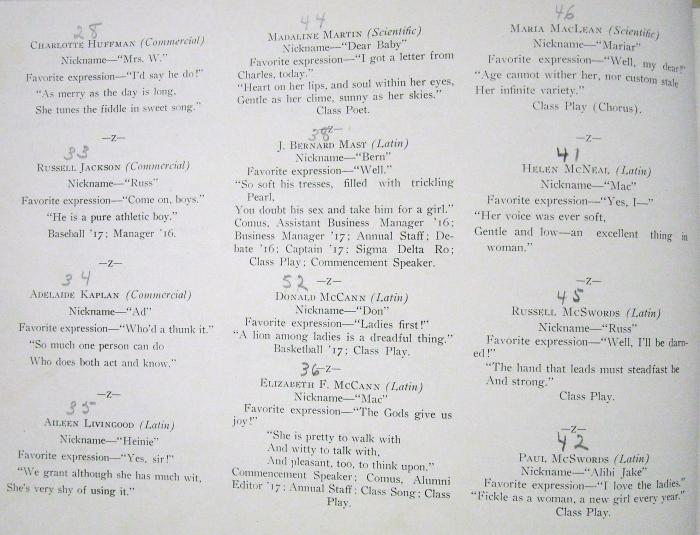 28
CHARLOTTE HUFFMAN (Commercial)
Nickname—"Mrs. W."
Favorite expression—"I'd say he do!"
"As merry as the day is long,
She tunes the fiddle in sweet song."
—Z—
33
RUSSELL JACKSON (Commercial)
Nickname—"Russ"
Favorite expression—"Come on, boys."
"He is a pure athletic boy."
Baseball '17; Manager '16.
—Z—
34
ADELAIDE KAPLAN (Commercial)
Nickname—"Ad"
Favorite expression—"Who'd a thunk it."
"So much one person can do
Who does both act and know."
—Z—
35
AILEEN LIVINGOOD (Latin)
Nickname—"Heinie"
Favorite expression—"Yes, sir!"
"We grant although she has much wit,
She's very shy of using it."
44
MADALINE MARTIN (Scientific)
Nickname—"Dear Baby"
Favorite expression—"I got a letter from
Charles, today."
"Heart on her lips, and soul within her eyes,
Gentle as her clime, sunny as her skies."
Class Poet.
—Z—
38
J. BERNARD MAST (Latin)
Nickname—"Bern"
Favorite expression—"Well."
"So soft his tresses, filled with trickling
Pearl,
You doubt his sex and take him for a girl."
Comus, Assistant Business Manager '16;
Business Manager '17; Annual Staff; De-
bate '16; Captain '17; Sigma Delta Ro;
Class Play; Commencement Speaker.
52 —Z—
DONALD MCCANN (Latin)
Nickname—"Don"
Favorite expression—"Ladies first!"
"A lion among ladies is a dreadful thing."
Basketball '17; Class Play.
36 —Z—
ELIZABETH F. MCCANN (Latin)
Nickname—"Mac"
Favorite expression—"The Gods give us
joy!"
"She is pretty to walk with
And witty to talk with,
And pleasant, too, to think upon."
Commencement Speaker; Comus, Alumni
Editor '17; Annual Staff; Class Song; Class
Play.
46
MARIA MACLEAN (Scientific)
Nickname—"Mariar"
Favorite expression—"Well, my dear!"
"Age cannot wither her, nor custom stale
Her infinite variety."
Class Play (Chorus).
—Z—
41
HELEN MCNEAL (Latin)
Nickname—"Mac"
Favorite expression—"Yes, I—"
"Her voice was ever soft,
Gentle and low—an excellent thing in
woman."
—Z—
45
RUSSELL MCSWORDS (Latin)
Nickname—"Russ"
Favorite expression—"Well, I'll be darn-
ed!"
"The hand that leads must steadfast be
And strong."
Class Play.
—Z—
42
PAUL MCSWORDS (Latin)
Nickname—"Alibi Jake"
Favorite expression—"I love the ladies."
"Fickle as a woman, a new girl every year."
Class Play.